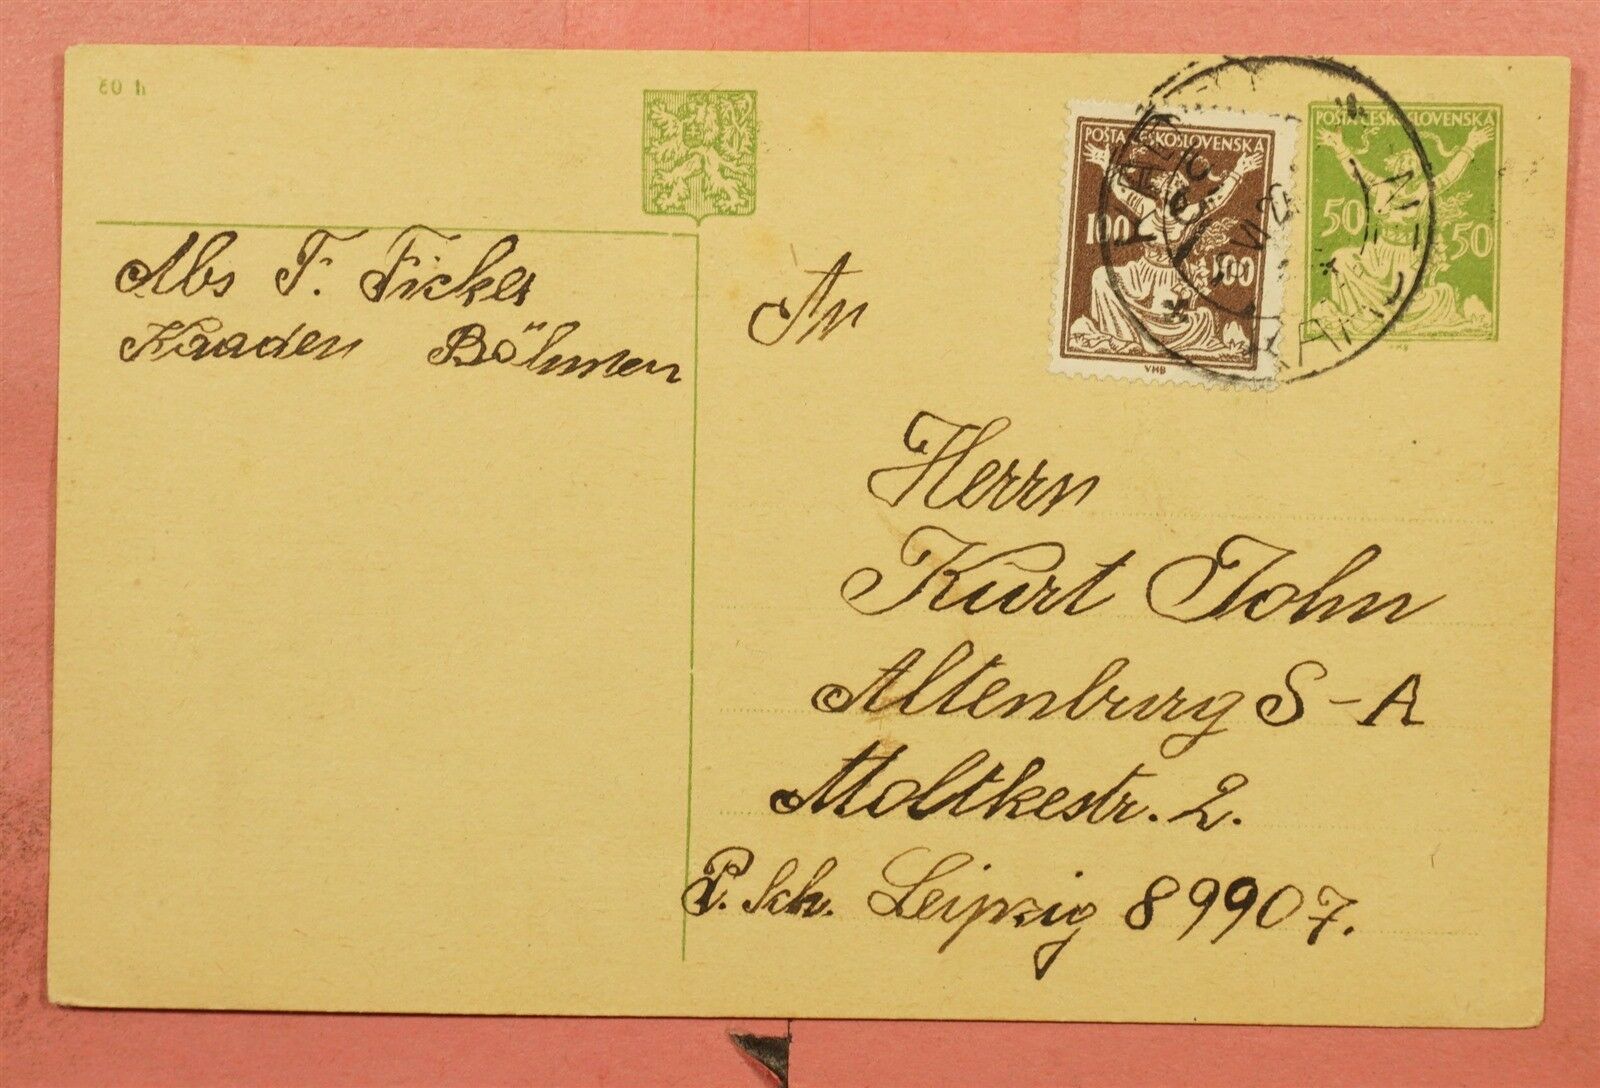 60 h
POŠTA ČESKOSLOVENSKÁ
100 100
VHB
POŠTA ČESKOSLOVENSKÁ
50 50
VHB
Abs F. Ficker
Kaaden Böhmen
An
Herrn
Kurt John
Altenburg S-A
Moltkestr. 2.
P. Sch. Leipzig 89907.